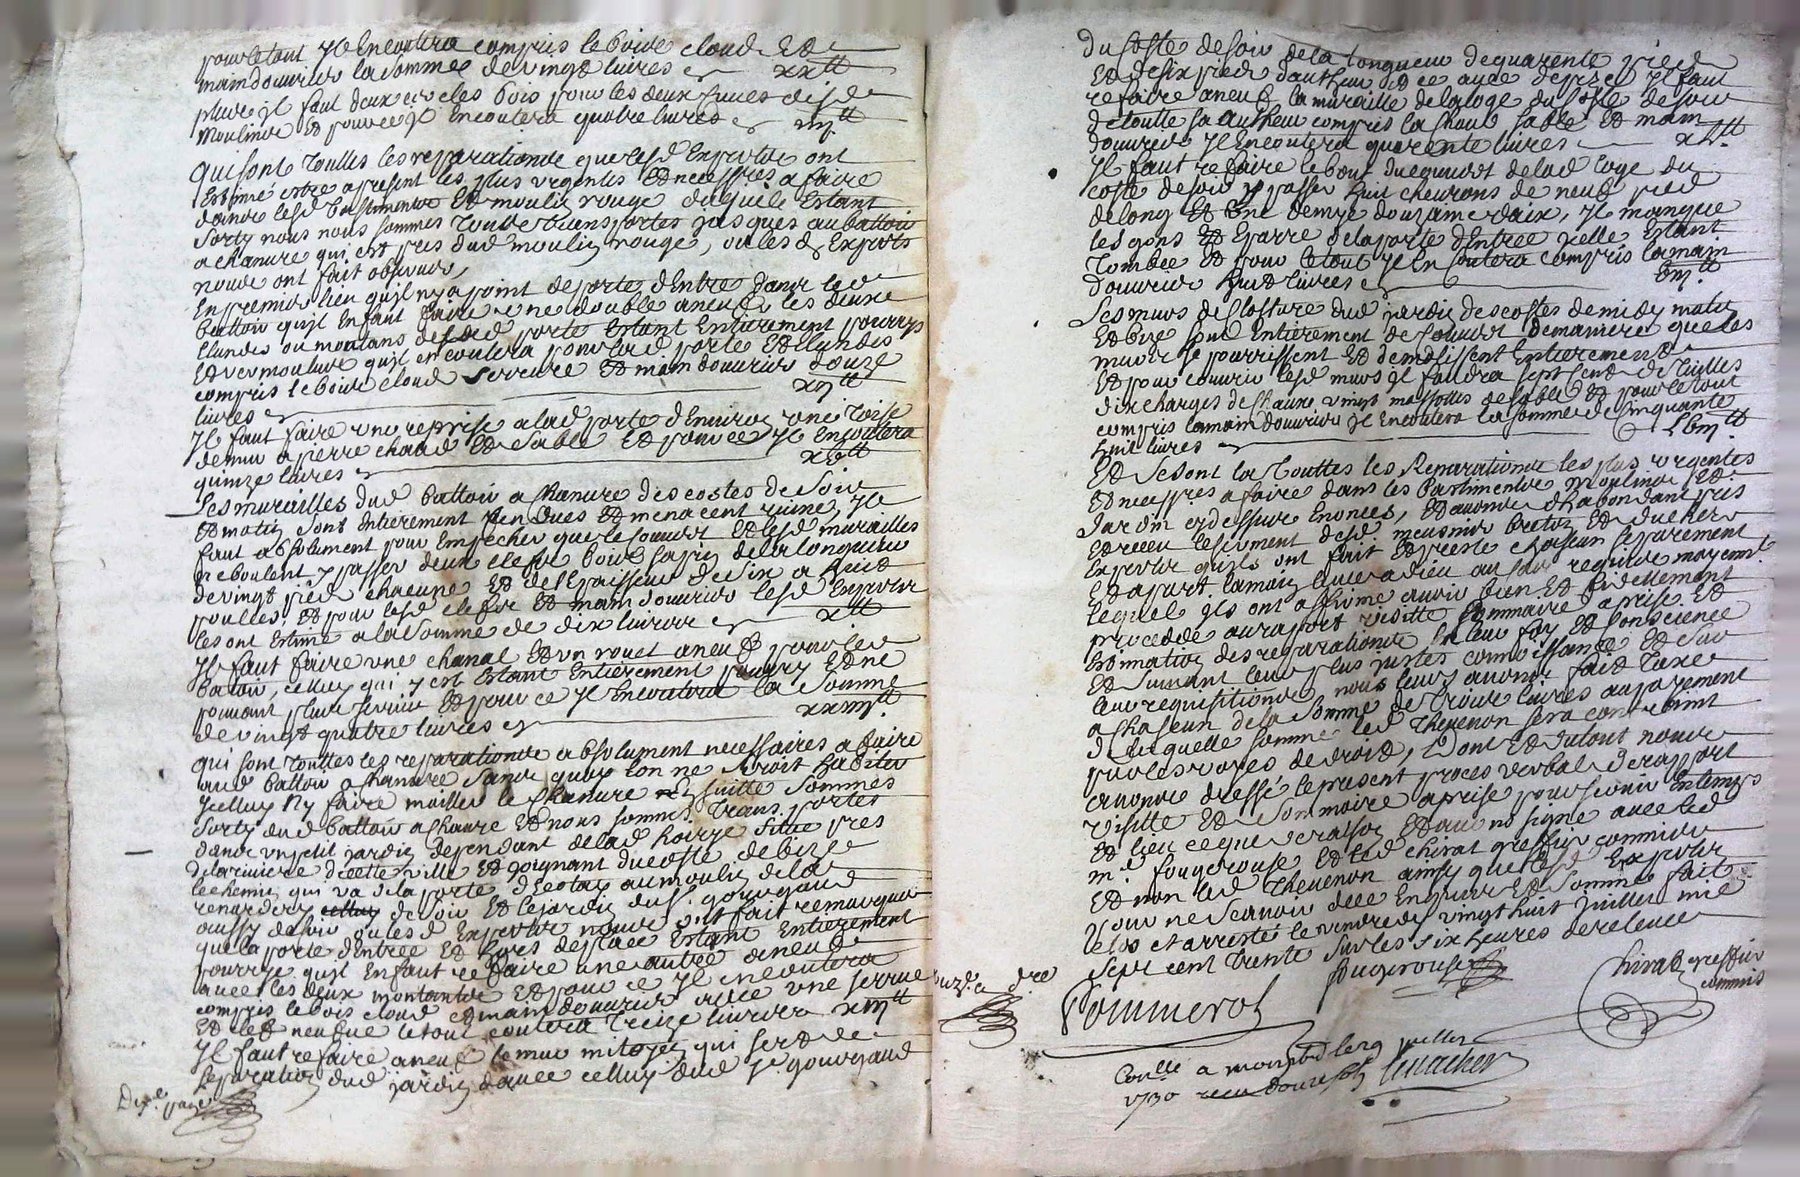 pour le tout yl En coutera compris le bois cloud Et
main douvrier la somme de vingt livres xx#
plus yl faut deux cercles bois pour les deux
moulins Et pour ce yl En coutera quatre livres iiij#
qui sont touttes les reparations que lesd Experts ont
Estimé estre apresent les plus urgentes Et necessres a faire
dans lesd bastiments Et moulin rouge daquele Estant
sorty nous nous sommes transportes jusques au battoir
a chanure qui est pres dud moulin rouge, ou lesd Experts
nous ont fait observer,
En premier lieu quil ny a point de porte dEntrée dans led
battoir quil En faut faire une double a neuf, les deux
Elandes ou montans de lad porte Estant Entierement pourrys
Et vermoulus quil en coutera pour lad porte Et Elandes
compris le bois cloud serrure Et main douvrier douze
livres xij#
Yl faut faire une reprise a lad porte dEnviron une toise
de mur a pierre chaud Et sable Et pour ce yl En coutera
quinze livres xv#
Les murailles dud battoir a chanure des costes de soir
Et matin sont Entierement fendues Et menacent ruine, yl
faut absolument pour Empecher que le couvert Et lesd murailles
ne eboulent y passer deux clefs bois sapin de la longueur
de vingt pied chacune Et de lEpaisseur de six a huit
poulces, Et pour lesd clefs Et main douvrier lesd Experts
les ont Estimé a la somme de dix livres x#
Yl faut faire une chanal Et un rouet a neuf pour led
batoir, celluy qui y est Estant Entierement pourry Et ne
pouvant plus servir Et pour ce yl En coutera la somme
de vingt quatre livres xxiiij#
qui sont touttes les reparations absolument necessaires a faire
aud battoir a chanure sans quoy lon ne sceroit habiter
ycelluy Ny faire mailler le chanure Ensuitte sommes
sorty dud battoir a chanure Et nous sommes transportes
dans un petit jardin dependant de lad hoirye situe pres
de la riviere de cette ville Et joignant du costé de bize
le chemin qui va de la porte dEcotay au moulin de la
renardery de soir Et le jardin du sr gourgaud
aussy de soir ou lesd Experts nous ont fait remarquer
que la porte dEntree Et hors de place Estant Entierement
pourrye quil En faut refaire une autre a neuf
avec les deux montants Et pour ce yl en coutera
compris le bois cloud Et main douvrier avec une serrure
Et clef neufue le tout coutera treize livres xiij#
Yl faut refaire a neuf le mur mitoyen qui sert de
separation dud jardin davec celluy dud sr gourgaud
du costé de soir de la longueur de quarente pied
Et de six pied dautheur Et ce ayde de pizé yl faut
refaire a neuf la muraille de la loge du costé de soir
de toutte sa autheur compris la chaul sable Et main
douvrier yl En coutera quarente livres xL#
Yl faut refaire le bout du couvert de lad loge du
costé de soir y passer huit chevrons de neuf pied
de long Et une demye douzaine daix, yl manque
les gons Et Eparre de la porte dEntree ycelle Estant
tombée Et pour le tout yl En coutera compris la main
douvrier huit livres viij#
Les murs de closture dud jardin des costes de midy matin
Et bize sont Entierement decouvert de maniere que les
murs se pourrissent Et demolissent Entierement
Et pour couvrir lesd murs yl faudra sept cent de tuilles
dix charges de chaux vingt massottes de sable Et pour le tout
compris la main douvrier yl En coutera la somme de cinquante
huit livres Lviij#
Et se sont la touttes les Reparations les plus urgentes
Et necessres a faire dans les bastiments moulins Et
jardin cy dessus Enoncés, Et avons dhabondant pris
Et receu le serment desd meusnier breton Et
Experts quils ont fait Et preste chascun separement
Et a part la main levee a dieu au sr requis moyennt
lequel yls ont affirmé avoir bien Et fidellement
procedde au raport visitte sommaire a prise Et
Estimation des reparations En leur foy Et conscience
Et suivant leurs plus justes connoissances Et sur
leur requisitions nous leurs avons fait taxe
a chascun de la somme de trois livres au payement
de laquelle somme led thevenon sera contraint
par les voyes de droit, Dont Et du tout nous
avons dressé le present proces verbal de rapport
visitte Et sommaire aprise pour servir En temps
Et lieu ce que de raison Et avons signe avec led
me fougerouse Et led chirat greffier commis
Et non led thevenon ainsy que lesd Experts
pour ne scavoir de ce Enquis Et sommes fait
clos et arresté le vendredy vingt huit juillet mil
sept cent trente sur les six heures de relevee
Pommerol
fougerouse
Chirat greffier
commis
Conllé a montbd le 29 juillet
1730